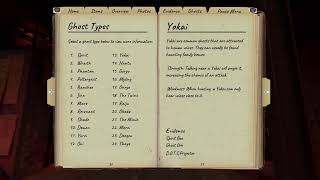 Home
Items
Overview
Photos
Evidence
Ghosts
Pause Menu
Ghost Types
Select a ghost type below to view more information.
1. Spirit
2. Wraith
3. Phantom
4. Poltergeist
5. Banshee
6. Jinn
7. Mare
8. Revenant
9. Shade
10. Demon
11. Yurei
12. Oni
13. Yokai
14. Hantu
15. Goryo
16. Myling
17. Onryo
18. The Twins
19. Raiju
20. Obake
21. The Mimic
22. Moroi
23. Deogen
24. Thaye
Yokai
Yokai are common ghosts that are attracted
to human voices. They can usually be found
haunting family homes.
Strength: Talking near a Yokai will anger it,
increasing the chance of an attack.
Weakness: When hunting, a Yokai can only
hear voices close to it.
Evidence
Spirit Box
Ghost Orb
D.O.T.S Projector